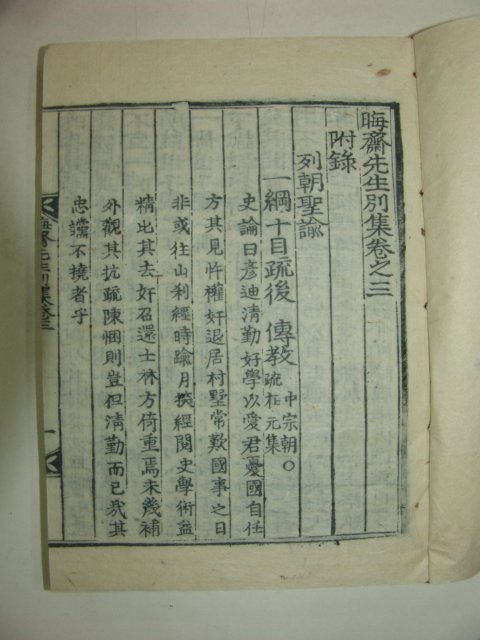 晦齋先生別集卷之三
附錄
列朝聖諭
一綱十目疏後 傳教 中宗朝○
疏在元集
史論曰彥迪清勤好學以愛君憂國自任
方其見忤權奸退居村墅常歎國事之日
非或往山刹經時踰月披經閱史學術益
精比其去奸召還士林方倚重焉未幾補
外觀其抗疏陳悃則豈但清勤而已哉其
忠讜不撓者乎
晦齋先生別集卷三
一